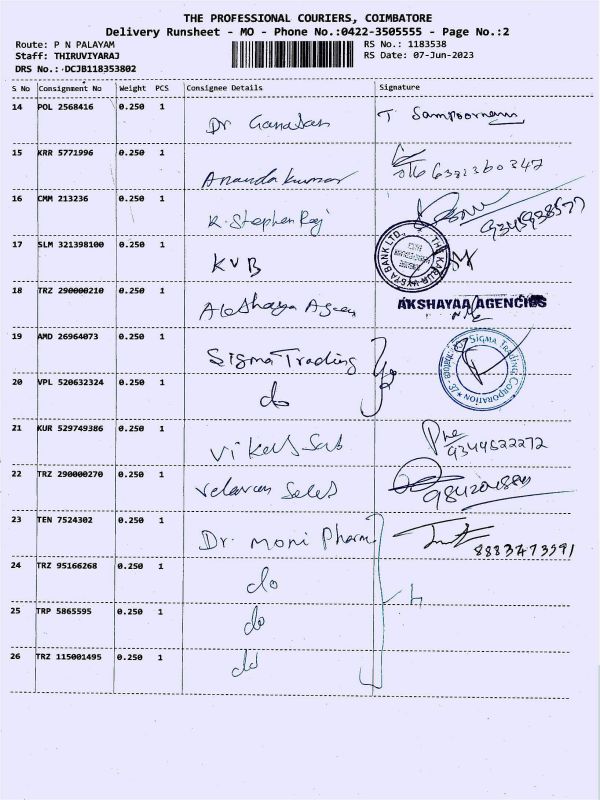 THE PROFESSIONAL COURIERS, COIMBATORE
Delivery Runsheet - MO - Phone No.:0422-3505555 - Page No.:2
Route: P N PALAYAM RS No.: 1183538
Staff: THIRUVIYARAJ RS Date: 07-Jun-2023
DRS No.: DCJB118353802
S No Consignment No Weight PCS Consignee Details Signature
14 POL 2568416 0.250 1 Dr T Sampoornam
15 KRR 5771996 0.250 1 Ananda kumar
16 CMM 213236 0.250 1 K. Stephen Raj
17 SLM 321398100 0.250 1 KVB THE KARUR VYSYA BANK LTD.,
18 TRZ 290000210 0.250 1 AKSHAYAA AGENCIES
19 AMD 26964073 0.250 1 Sigma Trading SIGMA TRADING CORPORATION
20 VPL 520632324 0.250 1 do
21 KUR 529749386 0.250 1 9344522272
22 TRZ 290000270 0.250 1 Velavan Sales
23 TEN 7524302 0.250 1 Dr. moni Pharm
24 TRZ 95166268 0.250 1 do
25 TRP 5865595 0.250 1 do
26 TRZ 115001495 0.250 1 do